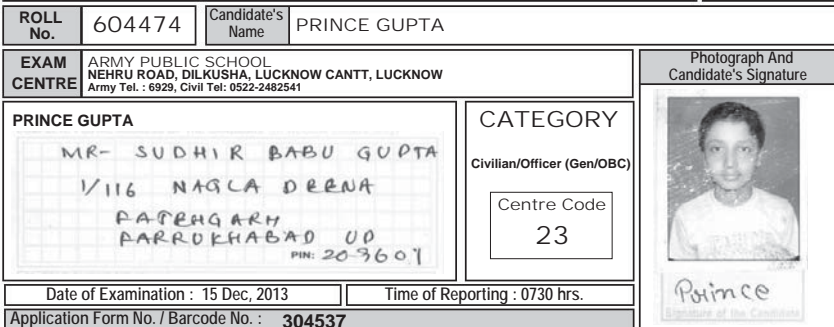 ROLL No. 604474 Candidate's Name PRINCE GUPTA
EXAM CENTRE
ARMY PUBLIC SCHOOL
NEHRU ROAD, DILKUSHA, LUCKNOW CANTT, LUCKNOW
Army Tel. : 6929, Civil Tel: 0522-2482541
Photograph And
Candidate's Signature
PRINCE GUPTA
MR- SUDHIR BABU GUPTA
1/116 NAGLA DEENA
FATEHGARH
FARRUKHABAD UP
PIN: 209601
CATEGORY
Civilian/Officer (Gen/OBC)
Centre Code
23
Prince
Signature of the Candidate
Date of Examination : 15 Dec, 2013
Time of Reporting : 0730 hrs.
Application Form No. / Barcode No. : 304537